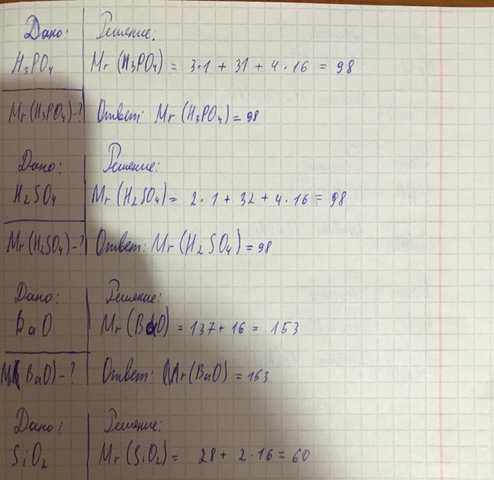 Дано: Решение.
H₃PO₄ Mr(H₃PO₄) = 3·1 + 31 + 4·16 = 98
Mr(H₃PO₄)-? Ответ: Mr(H₃PO₄) = 98
Дано: Решение:
H₂SO₄ Mr(H₂SO₄) = 2·1 + 32 + 4·16 = 98
Mr(H₂SO₄)-? Ответ: Mr(H₂SO₄) = 98
Дано: Решение:
BaO Mr(BaO) = 137 + 16 = 153
M(BaO)-? Ответ: Mr(BaO) = 153
Дано: Решение:
SiO₂ Mr(SiO₂) = 28 + 2·16 = 60